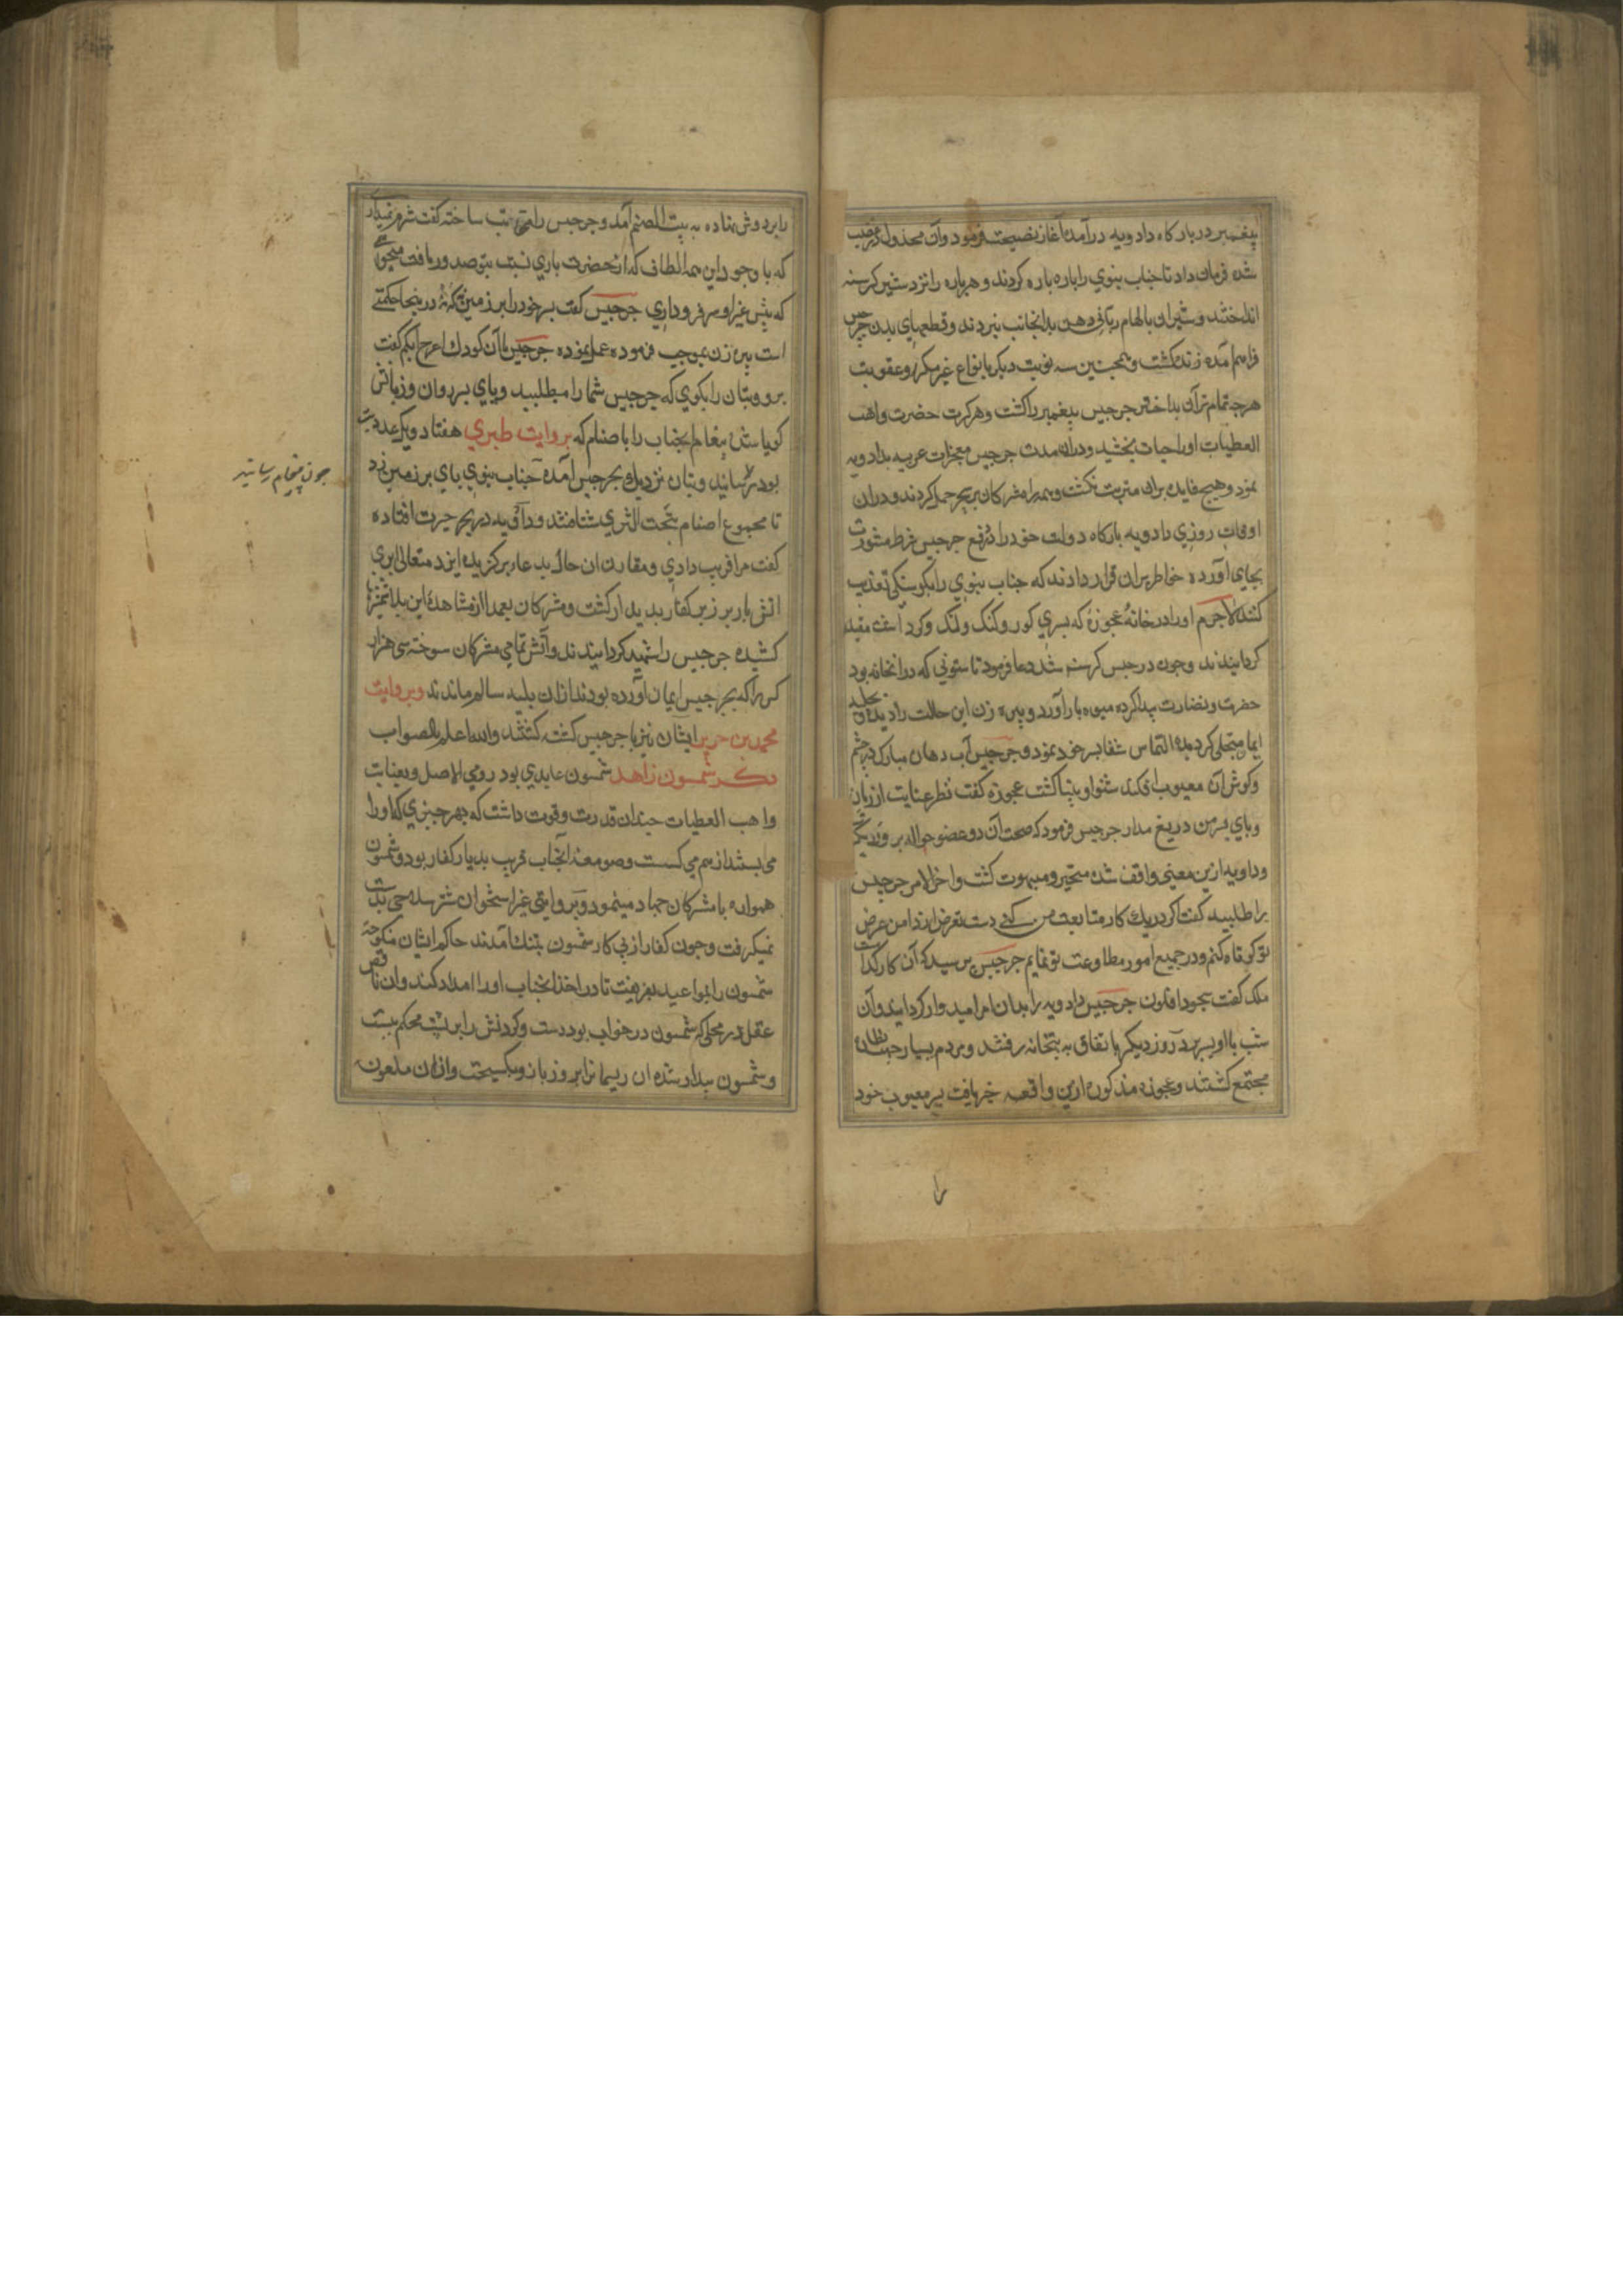 پیغمبر در بارکاه دادویه درآمده آغاز نصیحت فرمود وآن مخذول در غضب
شده فرمان داد تا جناب نبوي را پاره پاره کردند و هر پاره را نزد شیر کرسنه
انداختند و شیران بالهام ربانی دهن بدانجانب نبردند و قطعهاي بدن جرجیس
فراهم آمده زنده کشت و همچنین سه نوبت دیکر بانواع غیر مکرر وعقوبت
هرچه تمام تر آن بداختر جرجیس پیغمبر را کشت وهر کرت حضرت واهب
العطیات او را حیات بخشید ودران مدت جرجیس معجزات غریبه بدادویه
نمود وهیچ فایده بران مترتب نکشت وهمه را مشرکان بر سحر حمل کردند ودران
اوقات روزي دادویه بارکاه دولت خود را در دفع جرجیس شرط مشورت
بجاي آورده خاطر بران قرار دادند که جناب نبوي را بکرسنکي تعذیب
کنند لاجرم او را در خانهٔ عجوزهٔ که پسري کور وکنک ولنک وکر داشت مقید
کردانیدند وچون جرجیس کرسنه شد دعا فرمود تا ستوني که درانخانه بود
خضرت ونضارت پیدا کرده میوه بار آورد و پیره زن این حالت را دیده بحلیه
ایمان متحلي کردیده التماس شفا پسر خود نمود وجرجیس آب دهان مبارک در چشم
وکوش آن معیوب افکند شنوا وبینا کشت عجوزه کفت نظر عنایت از زبان
وپاي پسر من دریغ مدار جرجیس فرمود که صحت آن دو عضو حواله بر روز دیکر
ودادویه ازین معني واقف شده متحیر ومبهوت کشت واخر الامر جرجیس
را طلبیده کفت اکر در یك کار متابعت من کني دست تعرض از دامن عرض
تو کوتاه کنم ودر جمیع امور مطاوعت تو نمایم جرجیس پرسید که آن کار کدامست
ملك کفت سجود افلون جرجیس دادویه را بدان امر امیدوار کردانید وآن
شب با او بسر برد روز دیکر باتفاق به بتخانه رفتند ومردم بسیار جهت نظاره
مجتمع کشتند وعجوزه مذکوره ازین واقعه خبر یافت پسر معیوب خود
را
را بر دوش نهاده به بیت الصنم آمد وجرجیس را مخاطب ساخته کفت شرم نمیداري
که با وجود این همه الطاف که از حضرت باري نسبت بتو صدور یافت میخواهي
که پیش غیر او سر فرود آري جرجیس کفت پسر خود را بر زمین نه که درینجا حکمتي
است پیره زن بموجب فرموده عمل نموده جرجیس با آن کودك اعرج ابکم کفت
برو وبتان را بکوي که جرجیس شما را میطلبد وپاي پسر روان وزبانش
کویا شده پیغام آنجناب را باصنام که بروایت طبري هفتاد ویک عدد بت
بود رسانید وبتان نزدیك بجرجیس آمده جناب نبوي پاي بر زمین زد
تا مجموع اصنام بتحت الثري شتافتند ودادویه در بحر حیرت افتاده
کفت مرا فریب دادي ومقارن ان حال بدعاء برکزیده ایزد متعالي ابري
اتش بار بر زبر کفار پدیدار کشت ومشرکان بعد از مشاهدهٔ این بلا شمشیرها
کشیده جرجیس را شهید کردانیدند وآتش تمامي مشرکان سوخته سي هزار
کس را که بجرجیس ایمان آورده بودند ازان بلیه سالم ماندند وبروایت
محمد بن جریر ایشان نیز با جرجیس کشته کشتند والله اعلم بالصواب
ذکر شمسون زاهد شمسون عابدي بود رومي الاصل وبعنایت
واهب العطیات چندان قدرت وقوت داشت که بهر چیزي که او را
مي بستند از هم مي کسست وصومعهٔ آنجناب قریب بدیار کفار بود وشمسون
همواره با مشرکان جهاد مینمود وبروایتي غیر استخوان شتر سلاحي بدست
نمیکرفت وچون کفار از بي کار شمسون بتنك آمدند حاکم ایشان منکوحهٔ
شمسون را بمواعید بفریفت تا در اخذ آنجناب او را امداد کند وان ناقص
عقل در محلي که شمسون در خواب بود دست وکردنش را بر پشت محکم ببست
وشمسون بیدار شده ان ریسمان را بزور بازو بکسیخت وازان ملعونه
چون پیغام رسانید